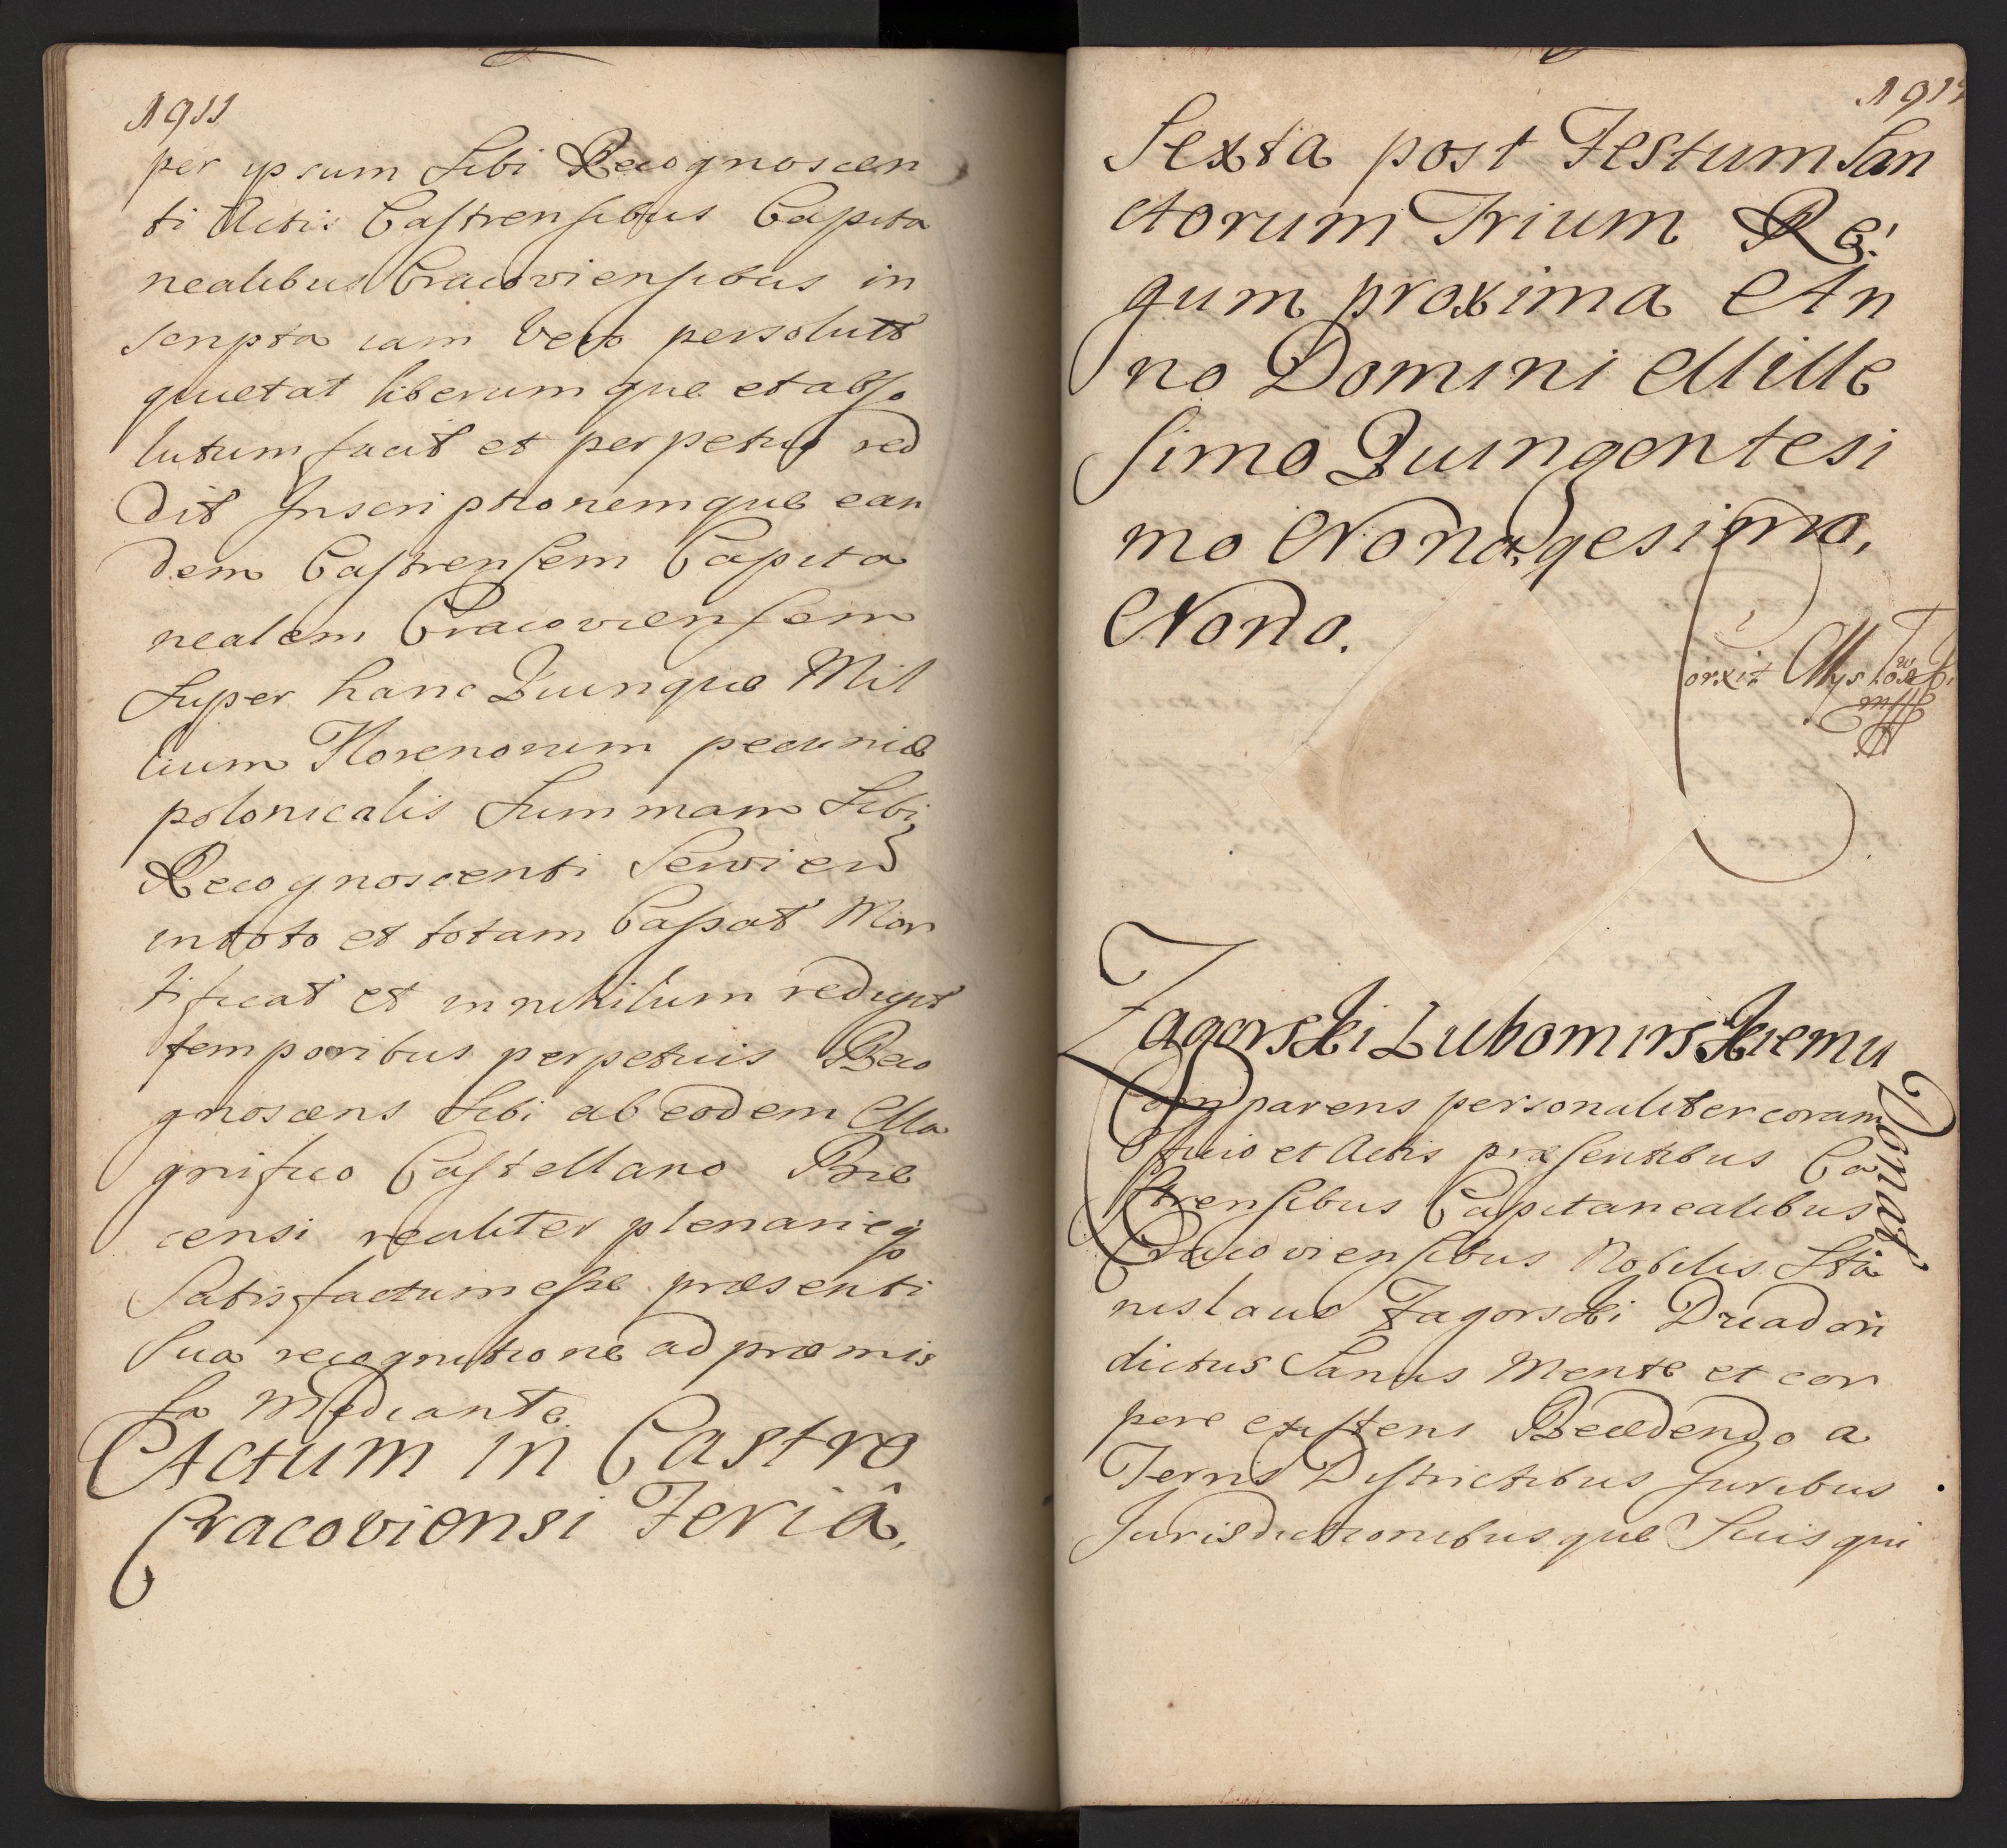 1911
per ipsum Sibi Recognoscen
ti Actis Castrensibus Capita
nealibus Cracoviensibus in
scripta iam vero persolutt
quietat liberumque et abso
lutum facit et perpetuo red
dit Inscriptionemque ean
dem Castrensem Capita
nealem Cracoviensem
Super hanc Quinque Mil
lium Florenorum pecuniæ
polonicalis Summam Sibi
Recognoscenti Servien
in toto et totam Cassat Mor
tificat et in nihilum redigit
temporibus perpetuis Reco
gnoscens Sibi ab eodem Ma
gnifico Castellano Bie
censi realiter plenarieq
Satisfactum esse præsenti
Sua recognitione ad præmis
sa Mediante
Actum in Castro
Cracoviensi Feriâ,
Sexta post Festum San
ctorum Trium Re
gum proxima An
no Domini Mille
simo Quingentesi
mo Nonagesimo,
Nono.
Zagorski Lubomirskiemu
Donat
Comparens personaliter coram
Officio et Actis præsentibus Ca
strensibus Capitanealibus
Cracoviensibus Nobilis Sta
nislaus Zagorski
dictus Sanus Mente et cor
pore existens Recedendo a
Terris Districtibus Juribus
Jurisdictionibusque Suis qui